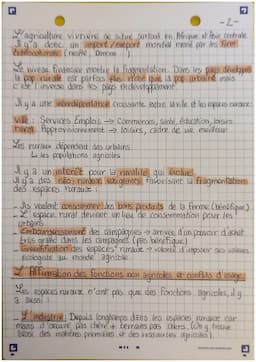 - 2 -
L'agriculture vivrière se situe surtout en Afrique et Asie centrale.
Il y a donc un import / export mondial mené par les firmes
(Nestlé, Danone...).
Le niveau financier montre la fragmentation. Dans les pays développés
la pop rurale est parfois plus riche que la pop urbaine mais
c'est l'inverse dans les pays en développement.
Il y a une interdépendance croissante entre la ville et les espaces ruraux :
Ville : Services Emplois → Commerces, santé, éducation, loisirs
Rural : Approvisionnement → loisirs, cadre de vie meilleur
Les ruraux dépendent des urbains
↳ les populations agricoles
Il y a un intérêt pour la ruralité qui évolue.
Il y a des néo-ruraux favorisant la fragmentation
des espaces ruraux :
- Ils veulent consommer des bons produits de la ferme (bénéfique)
- L'espace rural devient un lieu de consommation pour les
urbains
- Embourgeoisement des campagnes → arrivée d'un pouvoir d'achat
très élevé dans les campagnes (pas bénéfique)
- des espaces ruraux → volonté d'imposer ses valeurs
au monde agricole
L'affirmation des fonctions non agricoles et conflits d'usage
Les espaces ruraux n'ont pas que des fonctions agricoles, il y
a aussi :
- L'industrie : Depuis longtemps dans les espaces ruraux car
main d'œuvre pas chère et terrains pas chers. On y trouve
aussi des matières premières et des industries agricoles).